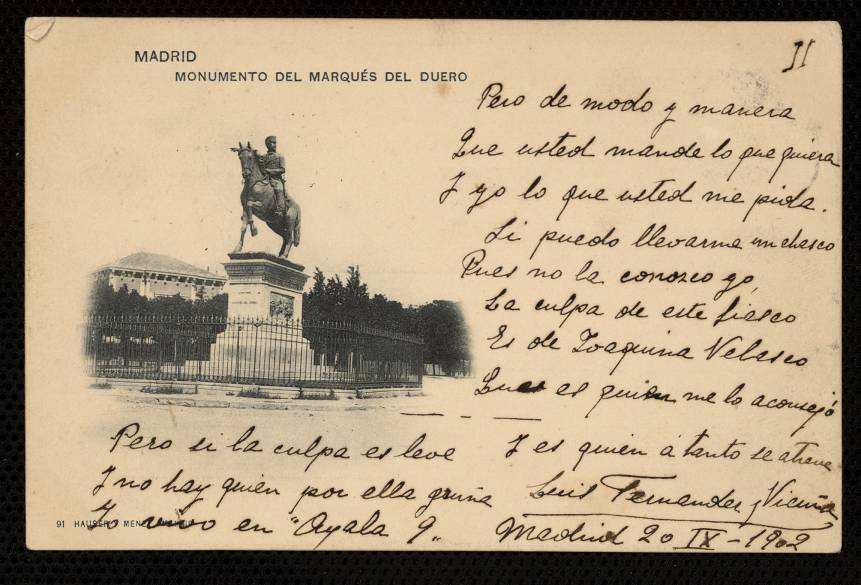 MADRID
MONUMENTO DEL MARQUÉS DEL DUERO
II
Pero de modo y manera
Que usted mande lo que quiera
Y yo lo que usted me pida.
Si puedo llevarme un chasco
Pues no la conozco yo,
La culpa de este fiasco
Es de Joaquina Velasco
Pues es quien me lo aconsejó
Pero si la culpa es leve
Y no hay quien por ella gruña
Yo vivo en "Ayala 9"
Y es quien á tanto se atreve
Luis Fernandez y Vicuña
Madrid 20 IX-1902
91 HAUSER Y MENET